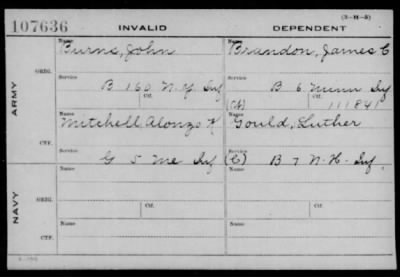 (3-H-5)
107636 INVALID DEPENDENT
Name Name
Burns, John Brandon, James C
ORIG. Service Service
B 160 N.Y. Inf B 6 Minn Inf
Ctf. Ctf.
111841
ARMY
Name Name
Mitchell Alonzo Gould, Luther
CTF. Service Service
G 5 Me Inf (C) B 7 N.H. Inf
NAVY
Name Name
ORIG. Ctf. Ctf.
Name Name
CTF.